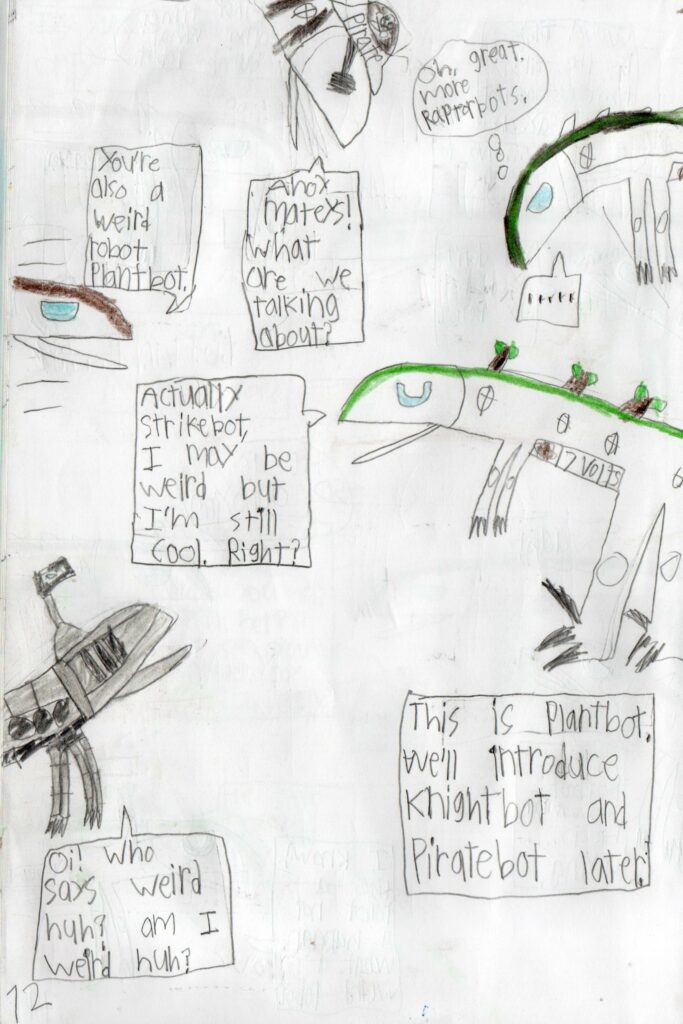 Pirate
Oh, great.
more
Raptorbots.
You're
also a
weird
robot
Plantbot.
Ahoy
mateys!
What
are we
talking
about?
.....
Actually
strikebot,
I may be
weird but
I'm still
cool. Right?
12 Volts
This is Plantbot.
We'll introduce
Knightbot and
Piratebot later!
Oi! Who
says weird
huh? am I
weird huh?
12